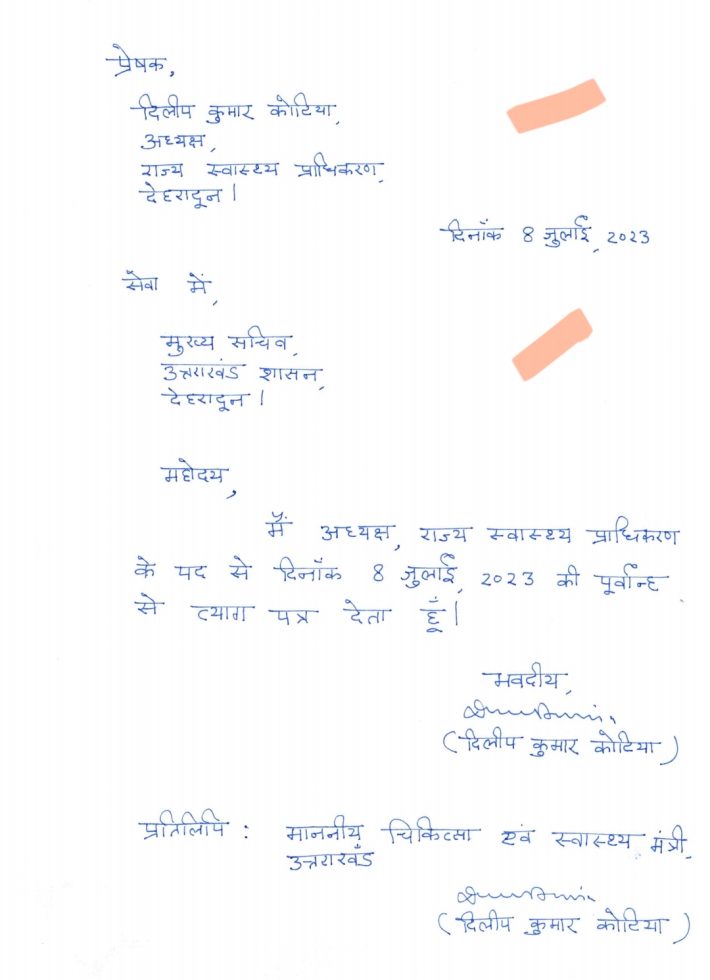 प्रेषक,
दिलीप कुमार कोटिया,
अध्यक्ष,
राज्य स्वास्थ्य प्राधिकरण,
देहरादून।
दिनाँक 8 जुलाई, 2023
सेवा में,
मुख्य सचिव,
उत्तराखंड शासन,
देहरादून।
महोदय,
मैं अध्यक्ष, राज्य स्वास्थ्य प्राधिकरण
के पद से दिनाँक 8 जुलाई, 2023 की पूर्वान्ह
से त्याग पत्र देता हूँ।
भवदीय,
(दिलीप कुमार कोटिया)
प्रतिलिपि : माननीय चिकित्सा एवं स्वास्थ्य मंत्री,
उत्तराखंड
(दिलीप कुमार कोटिया)